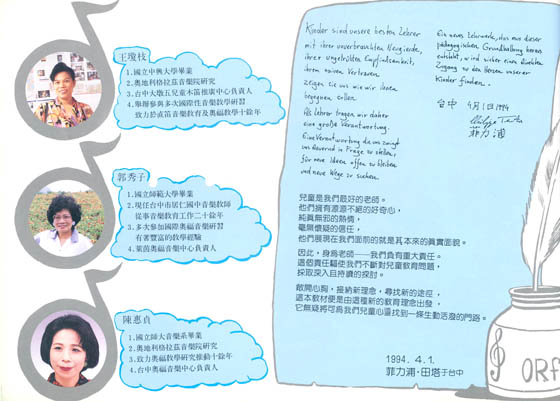 王瓊枝
1.國立中興大學畢業
2.奧地利格拉茲音樂院研究
3.台中大敦五兒童木笛推廣中心負責人
4.舉辦參與多次國際性音樂教學研習
致力於直笛音樂教育及奧福教學十餘年
郭秀子
1.國立師範大學畢業
2.現任台中市居仁國中音樂教師
從事音樂教育工作二十餘年
3.多次參加國際奧福音樂研習
有著豐富的教學經驗
4.茱茵奧福音樂中心負責人
陳惠貞
1.國立師大音樂系畢業
2.奧地利格拉茲音樂院研究
3.致力奧福教學研究推動十餘年
4.台中奧福音樂中心負責人
Kinder sind unsere besten Lehrer
mit ihrer unverbrauchten Neugierde,
ihrer ungetrübten Empfindsamkeit,
ihrem naiven Vertrauen
zeigen sie uns wie wir ihnen
begegnen sollen.
Als Lehrer tragen wir daher
eine große Verantwortung.
Eine Verantwortung die uns zwingt
uns dauernd in Frage zu stellen,
für neue Ideen offen zu bleiben
und neue Wege zu suchen.
Ein neues Lehrwerk, das aus dieser
pädagogischen Grundhaltung heraus
entsteht, wird sicher einen direkten
Zugang zu den Herzen unserer
Kinder finden.
台中 4月1日1994
菲力浦
兒童是我們最好的老師。
他們擁有源源不絕的好奇心,
純真無邪的熱情,
毫無懷疑的信任,
他們展現在我們面前的就是其本來的真實面貌。
因此,身為老師——我們負有重大責任。
這個責任驅使我們不斷對兒童教育問題,
採取深入且持續的探討。
敞開心胸,接納新理念,尋找新的途徑,
這本教材便是由這種新的教育理念出發,
它無疑將可為我們兒童心靈找到一條生動活潑的門路。
1994. 4.1.
菲力浦·田塔于台中
ORf